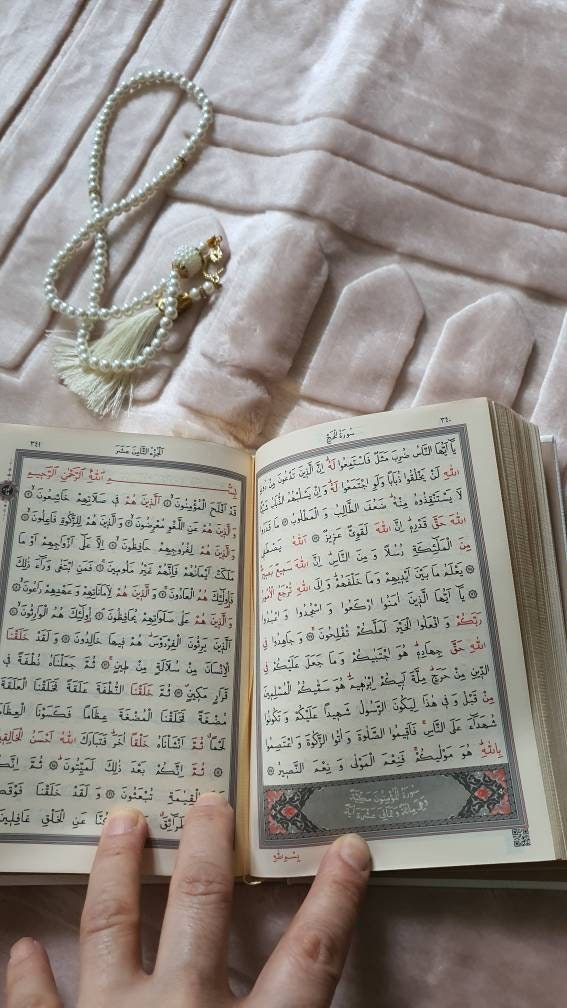 ٣٤٠
سُورَةُ الْحَجِّ
يَٓا اَيُّهَا النَّاسُ ضُرِبَ مَثَلٌ فَاسْتَمِعُوا لَهُ اِنَّ الَّذ۪ينَ تَدْعُونَ مِنْ دُونِ
اللّٰهِ لَنْ يَخْلُقُوا ذُبَابًا وَلَوِ اجْتَمَعُوا لَهُ وَاِنْ يَسْلُبْهُمُ الذُّبَابُ شَيْـًٔا
لَا يَسْتَنْقِذُوهُ مِنْهُ ضَعُفَ الطَّالِبُ وَالْمَطْلُوبُ ۞ مَا قَدَرُوا
اللّٰهَ حَقَّ قَدْرِه۪ اِنَّ اللّٰهَ لَقَوِيٌّ عَز۪يزٌ ۞ اَللّٰهُ يَصْطَف۪ي
مِنَ الْمَلٰٓئِكَةِ رُسُلًا وَمِنَ النَّاسِ اِنَّ اللّٰهَ سَم۪يعٌ بَص۪يرٌ
۞ يَعْلَمُ مَا بَيْنَ اَيْد۪يهِمْ وَمَا خَلْفَهُمْ وَاِلَى اللّٰهِ تُرْجَعُ الْاُمُورُ
۞ يَٓا اَيُّهَا الَّذ۪ينَ اٰمَنُوا ارْكَعُوا وَاسْجُدُوا وَاعْبُدُوا
رَبَّكُمْ وَافْعَلُوا الْخَيْرَ لَعَلَّكُمْ تُفْلِحُونَ ۞ وَجَاهِدُوا فِي
اللّٰهِ حَقَّ جِهَادِه۪ هُوَ اجْتَبٰيكُمْ وَمَا جَعَلَ عَلَيْكُمْ فِي
الدّ۪ينِ مِنْ حَرَجٍ مِلَّةَ اَب۪يكُمْ اِبْرٰه۪يمَ هُوَ سَمّٰيكُمُ الْمُسْلِم۪ينَ
مِنْ قَبْلُ وَف۪ي هٰذَا لِيَكُونَ الرَّسُولُ شَه۪يدًا عَلَيْكُمْ وَتَكُونُوا
شُهَدَٓاءَ عَلَى النَّاسِ فَاَق۪يمُوا الصَّلٰوةَ وَاٰتُوا الزَّكٰوةَ وَاعْتَصِمُوا
بِاللّٰهِ هُوَ مَوْلٰيكُمْ فَنِعْمَ الْمَوْلٰى وَنِعْمَ النَّص۪يرُ ۞
سُورَةُ الْمُؤْمِنُونَ مَكِّيَّةٌ
٣٤١
اَلْجُزْءُ الثَّامِنَ عَشَرَ
بِسْمِ اللّٰهِ الرَّحْمٰنِ الرَّح۪يمِ
قَدْ اَفْلَحَ الْمُؤْمِنُونَ ۞ اَلَّذ۪ينَ هُمْ ف۪ي صَلَاتِهِمْ خَاشِعُونَ ۞
وَالَّذ۪ينَ هُمْ عَنِ اللَّغْوِ مُعْرِضُونَ ۞ وَالَّذ۪ينَ هُمْ لِلزَّكٰوةِ فَاعِلُونَ ۞
وَالَّذ۪ينَ هُمْ لِفُرُوجِهِمْ حَافِظُونَ ۞ اِلَّا عَلٰٓى اَزْوَاجِهِمْ اَوْ مَا
مَلَكَتْ اَيْمَانُهُمْ فَاِنَّهُمْ غَيْرُ مَلُوم۪ينَ ۞ فَمَنِ ابْتَغٰى وَرَٓاءَ ذٰلِكَ
فَاُو۬لٰٓئِكَ هُمُ الْعَادُونَ ۞ وَالَّذ۪ينَ هُمْ لِاَمَانَاتِهِمْ وَعَهْدِهِمْ رَاعُونَ ۞
وَالَّذ۪ينَ هُمْ عَلٰى صَلَوَاتِهِمْ يُحَافِظُونَ ۞ اُو۬لٰٓئِكَ هُمُ الْوَارِثُونَ ۞
اَلَّذ۪ينَ يَرِثُونَ الْفِرْدَوْسَ هُمْ ف۪يهَا خَالِدُونَ ۞ وَلَقَدْ خَلَقْنَا
الْاِنْسَانَ مِنْ سُلَالَةٍ مِنْ ط۪ينٍ ۞ ثُمَّ جَعَلْنَاهُ نُطْفَةً ف۪ي
قَرَارٍ مَك۪ينٍ ۞ ثُمَّ خَلَقْنَا النُّطْفَةَ عَلَقَةً فَخَلَقْنَا الْعَلَقَةَ
مُضْغَةً فَخَلَقْنَا الْمُضْغَةَ عِظَامًا فَكَسَوْنَا الْعِظَامَ
لَحْمًا ثُمَّ اَنْشَأْنَاهُ خَلْقًا اٰخَرَ فَتَبَارَكَ اللّٰهُ اَحْسَنُ الْخَالِق۪ينَ
۞ ثُمَّ اِنَّكُمْ بَعْدَ ذٰلِكَ لَمَيِّتُونَ ۞ ثُمَّ اِنَّكُمْ
الْقِيٰمَةِ تُبْعَثُونَ ۞ وَلَقَدْ خَلَقْنَا فَوْقَكُمْ
طَرَٓائِقَ عَنِ الْخَلْقِ غَافِل۪ينَ